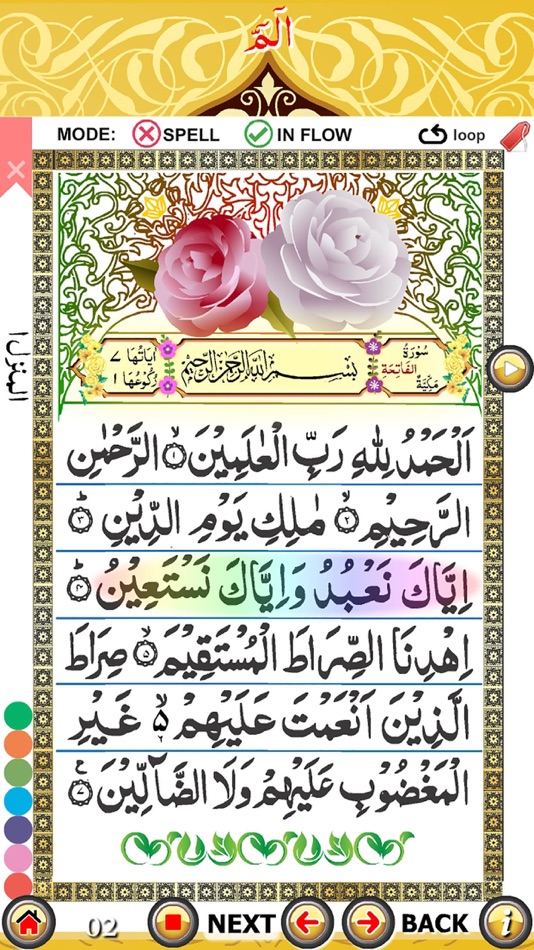 الٓمّٓ
MODE: SPELL IN FLOW loop
المنزل ١
سُوْرَةُ الْفَاتِحَةِ مَكِّيَّةٌ
بِسْمِ اللّٰهِ الرَّحْمٰنِ الرَّحِيْمِ
اٰيَاتُهَا ٧
رُكُوْعُهَا ١
اَلْحَمْدُ لِلّٰهِ رَبِّ الْعٰلَمِيْنَ ۙ﴿١﴾ الرَّحْمٰنِ
الرَّحِيْمِ ۙ﴿٢﴾ مٰلِكِ يَوْمِ الدِّيْنِ ؕ﴿٣﴾
اِيَّاكَ نَعْبُدُ وَاِيَّاكَ نَسْتَعِيْنُ ؕ﴿٤﴾
اِهْدِنَا الصِّرَاطَ الْمُسْتَقِيْمَ ۙ﴿٥﴾ صِرَاطَ
الَّذِيْنَ اَنْعَمْتَ عَلَيْهِمْ ۙ۵ غَيْرِ
الْمَغْضُوْبِ عَلَيْهِمْ وَلَا الضَّآلِّيْنَ ﴿٧﴾ ع
02 NEXT BACK i